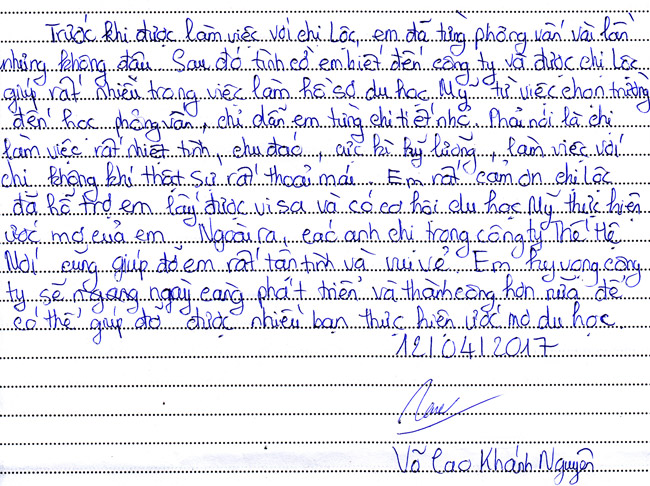 Trước khi được làm việc với chị Lộc, em đã từng phỏng vấn và lần
nhưng không đậu. Sau đó tình cờ em biết đến công ty và được chị Lộc
giúp rất nhiều trong việc làm hồ sơ du học Mỹ từ việc chọn trường
đến học phỏng vấn, chỉ dẫn em từng chi tiết nhỏ. Phải nói là chị
làm việc rất nhiệt tình, chu đáo, cực kì kỹ lưỡng, làm việc với
chị không khí thật sự rất thoải mái. Em rất cảm ơn chị Lộc
đã hỗ trợ em lấy được visa và có cơ hội du học Mỹ thực hiện
ước mơ của em. Ngoài ra, các anh chị trong công ty Thế Hệ
Mới cũng giúp đỡ em rất tận tình và vui vẻ. Em hy vọng công
ty sẽ ngang ngày càng phát triển và thành công hơn nữa để
có thể giúp đỡ được nhiều bạn thực hiện ước mơ du học.
12/04/2017
Võ Cao Khánh Nguyên